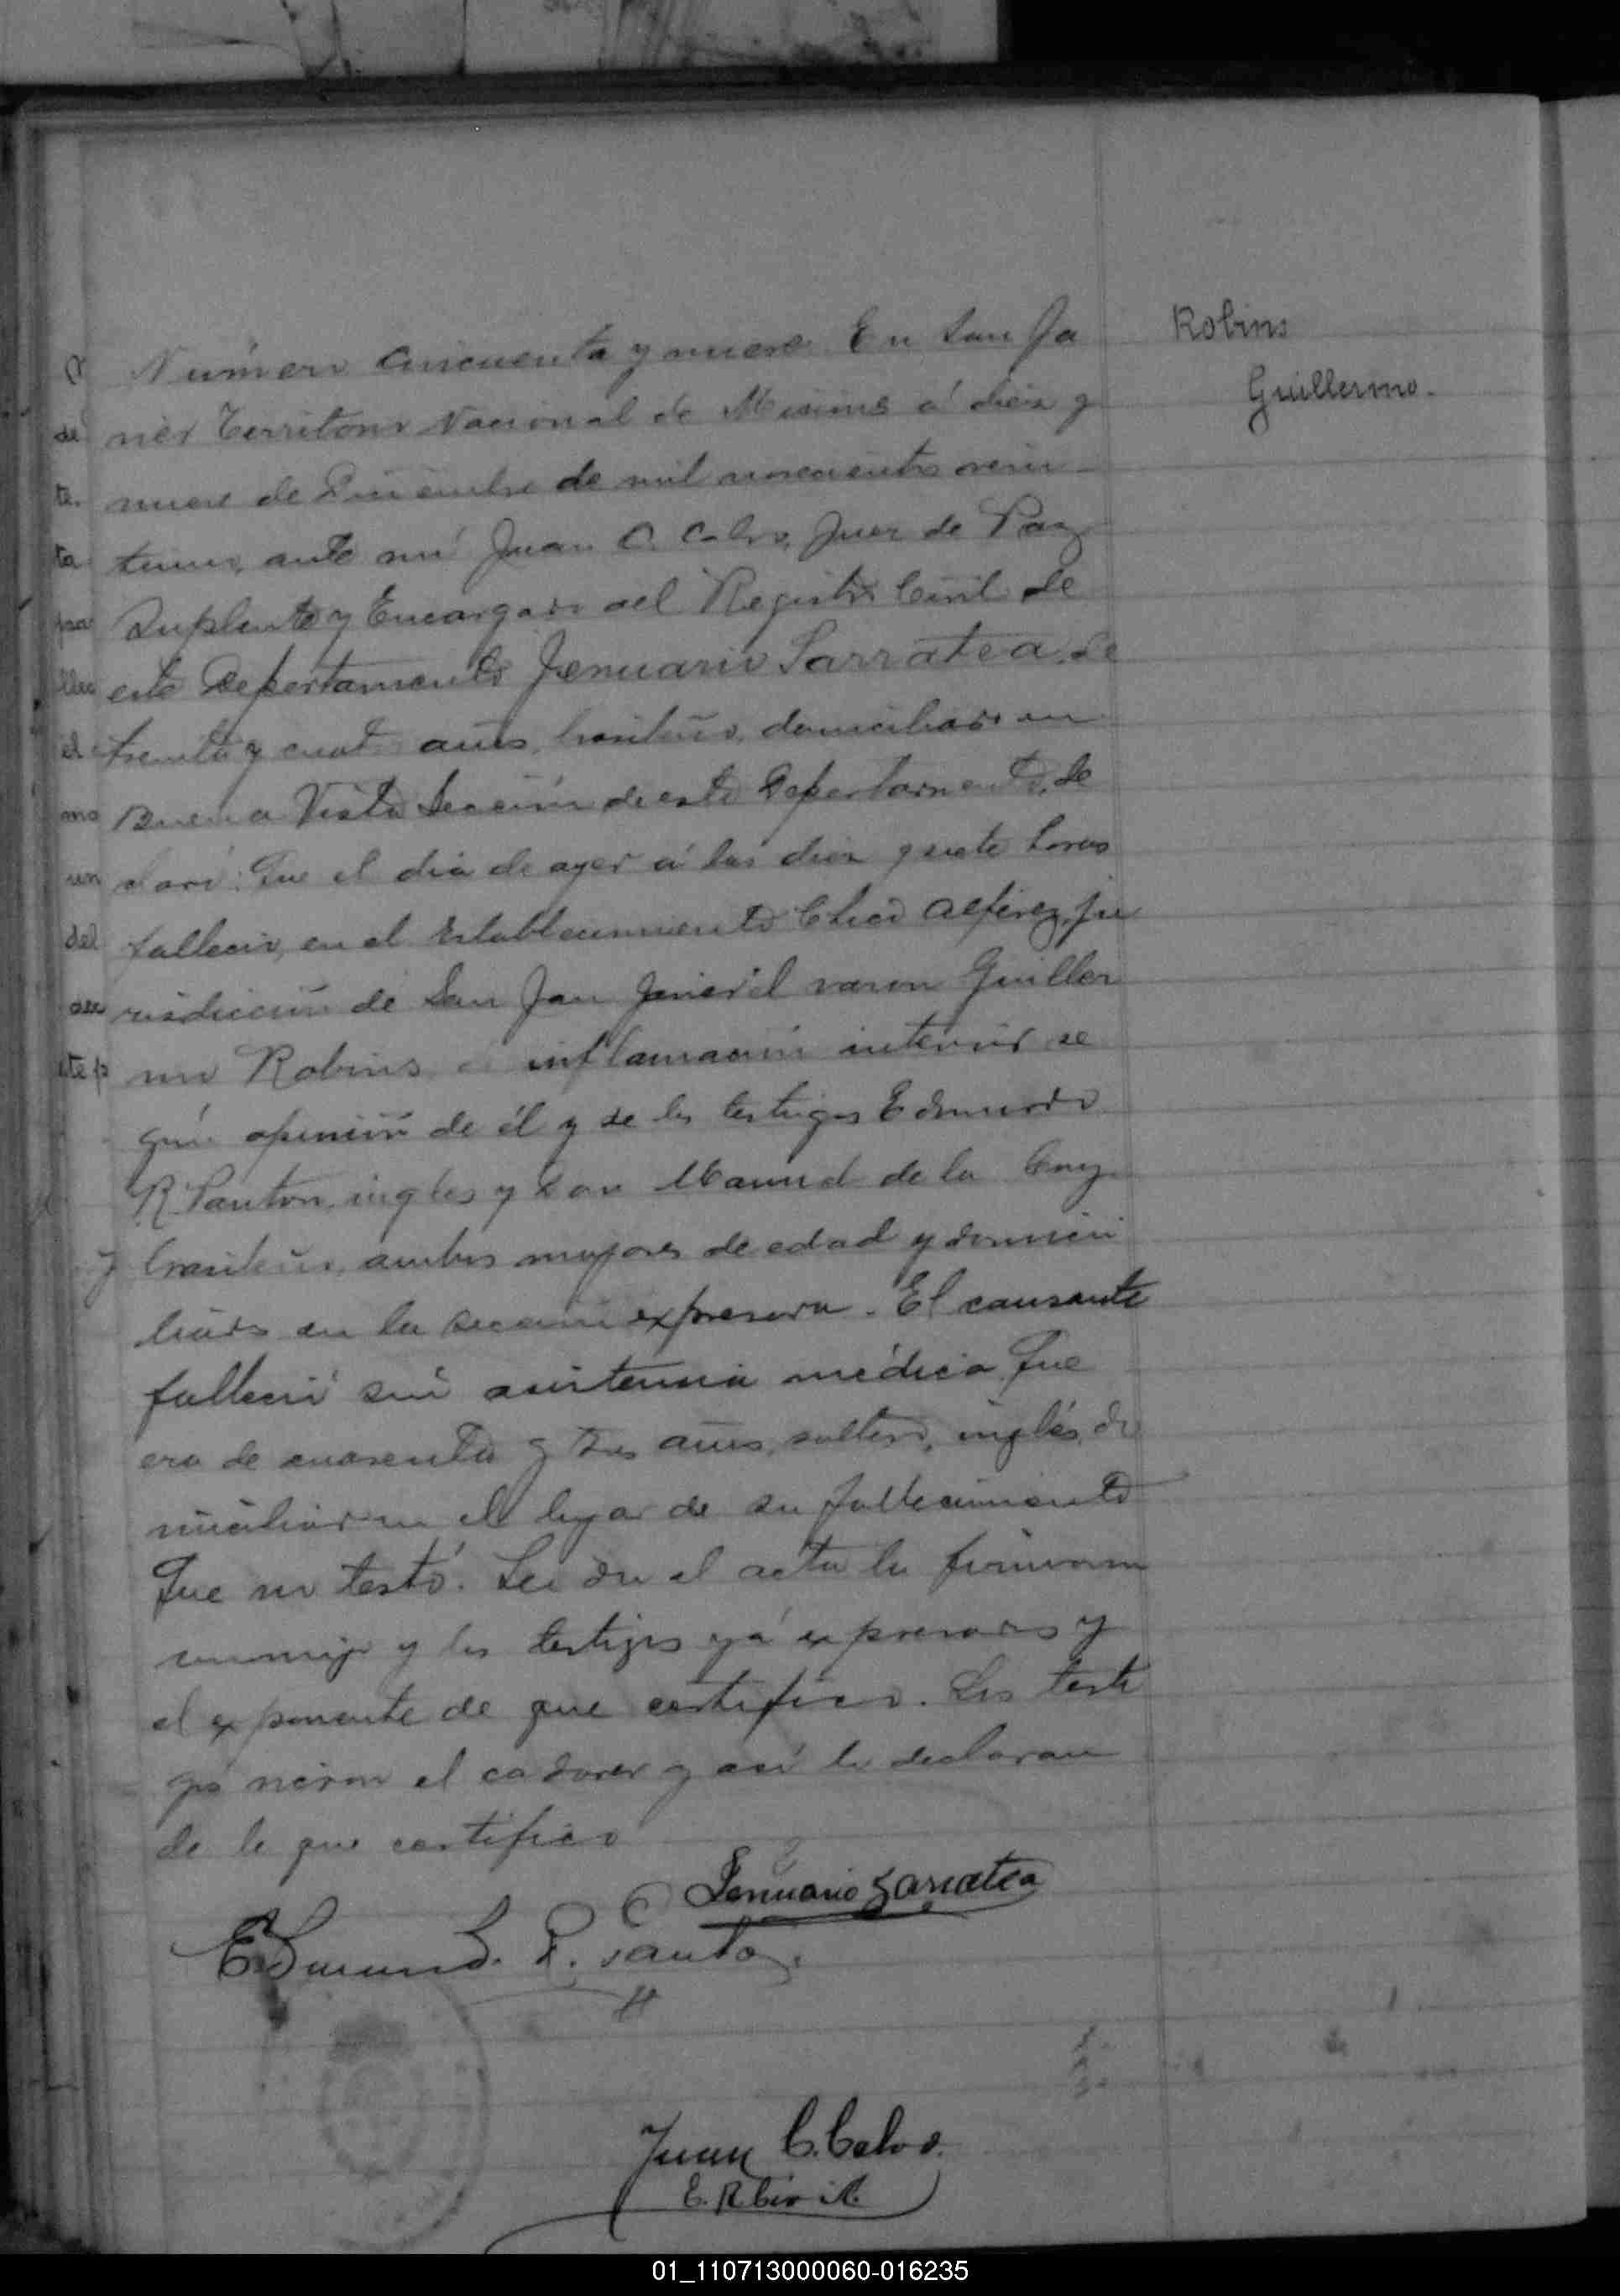 Robins
Guillermo.
Número cincuenta y nueve En San Ja
vier Territorio Nacional de Misiones á diez y
nueve de Diciembre de mil novecientos vein
tiuno, ante mí Juan C. Calvo, Juez de Paz
Suplente y Encargado del Registro Civil de
este Departamento Jenuario Sarratea, de
treinta y cuatro años, brasileño, domiciliado en
Buena Vista Sección de este Departamento, de
claró: Que el dia de ayer á las diez y siete horas
falleció, en el Establecimiento Chico Alferez, ju
risdicción de San Javier el varon Guiller
mo Robins inflamación interior se
gún opinión de él y de los testigos Edmundo
R. Santon, ingles y Don Manuel de la Cruz
brasileño, ambos mayores de edad y domici
liados en la sección expresada. El causante
falleció sin asistencia médica Que
era de cuarenta y tres años, soltero, inglés, do
miciliado en el lugar de su fallecimiento
Que no testó. Leida el acta la firmaron
conmigo y los testigos yá expresados y
el exponente de que certifico. Los testi
gos vieron el cadaver y así lo declaran
de lo que certifico
Jenuario Sarratea
Edmund. R. Santon.
Juan C. Calvo.
E. R. Civil.
01_110713000060-016235